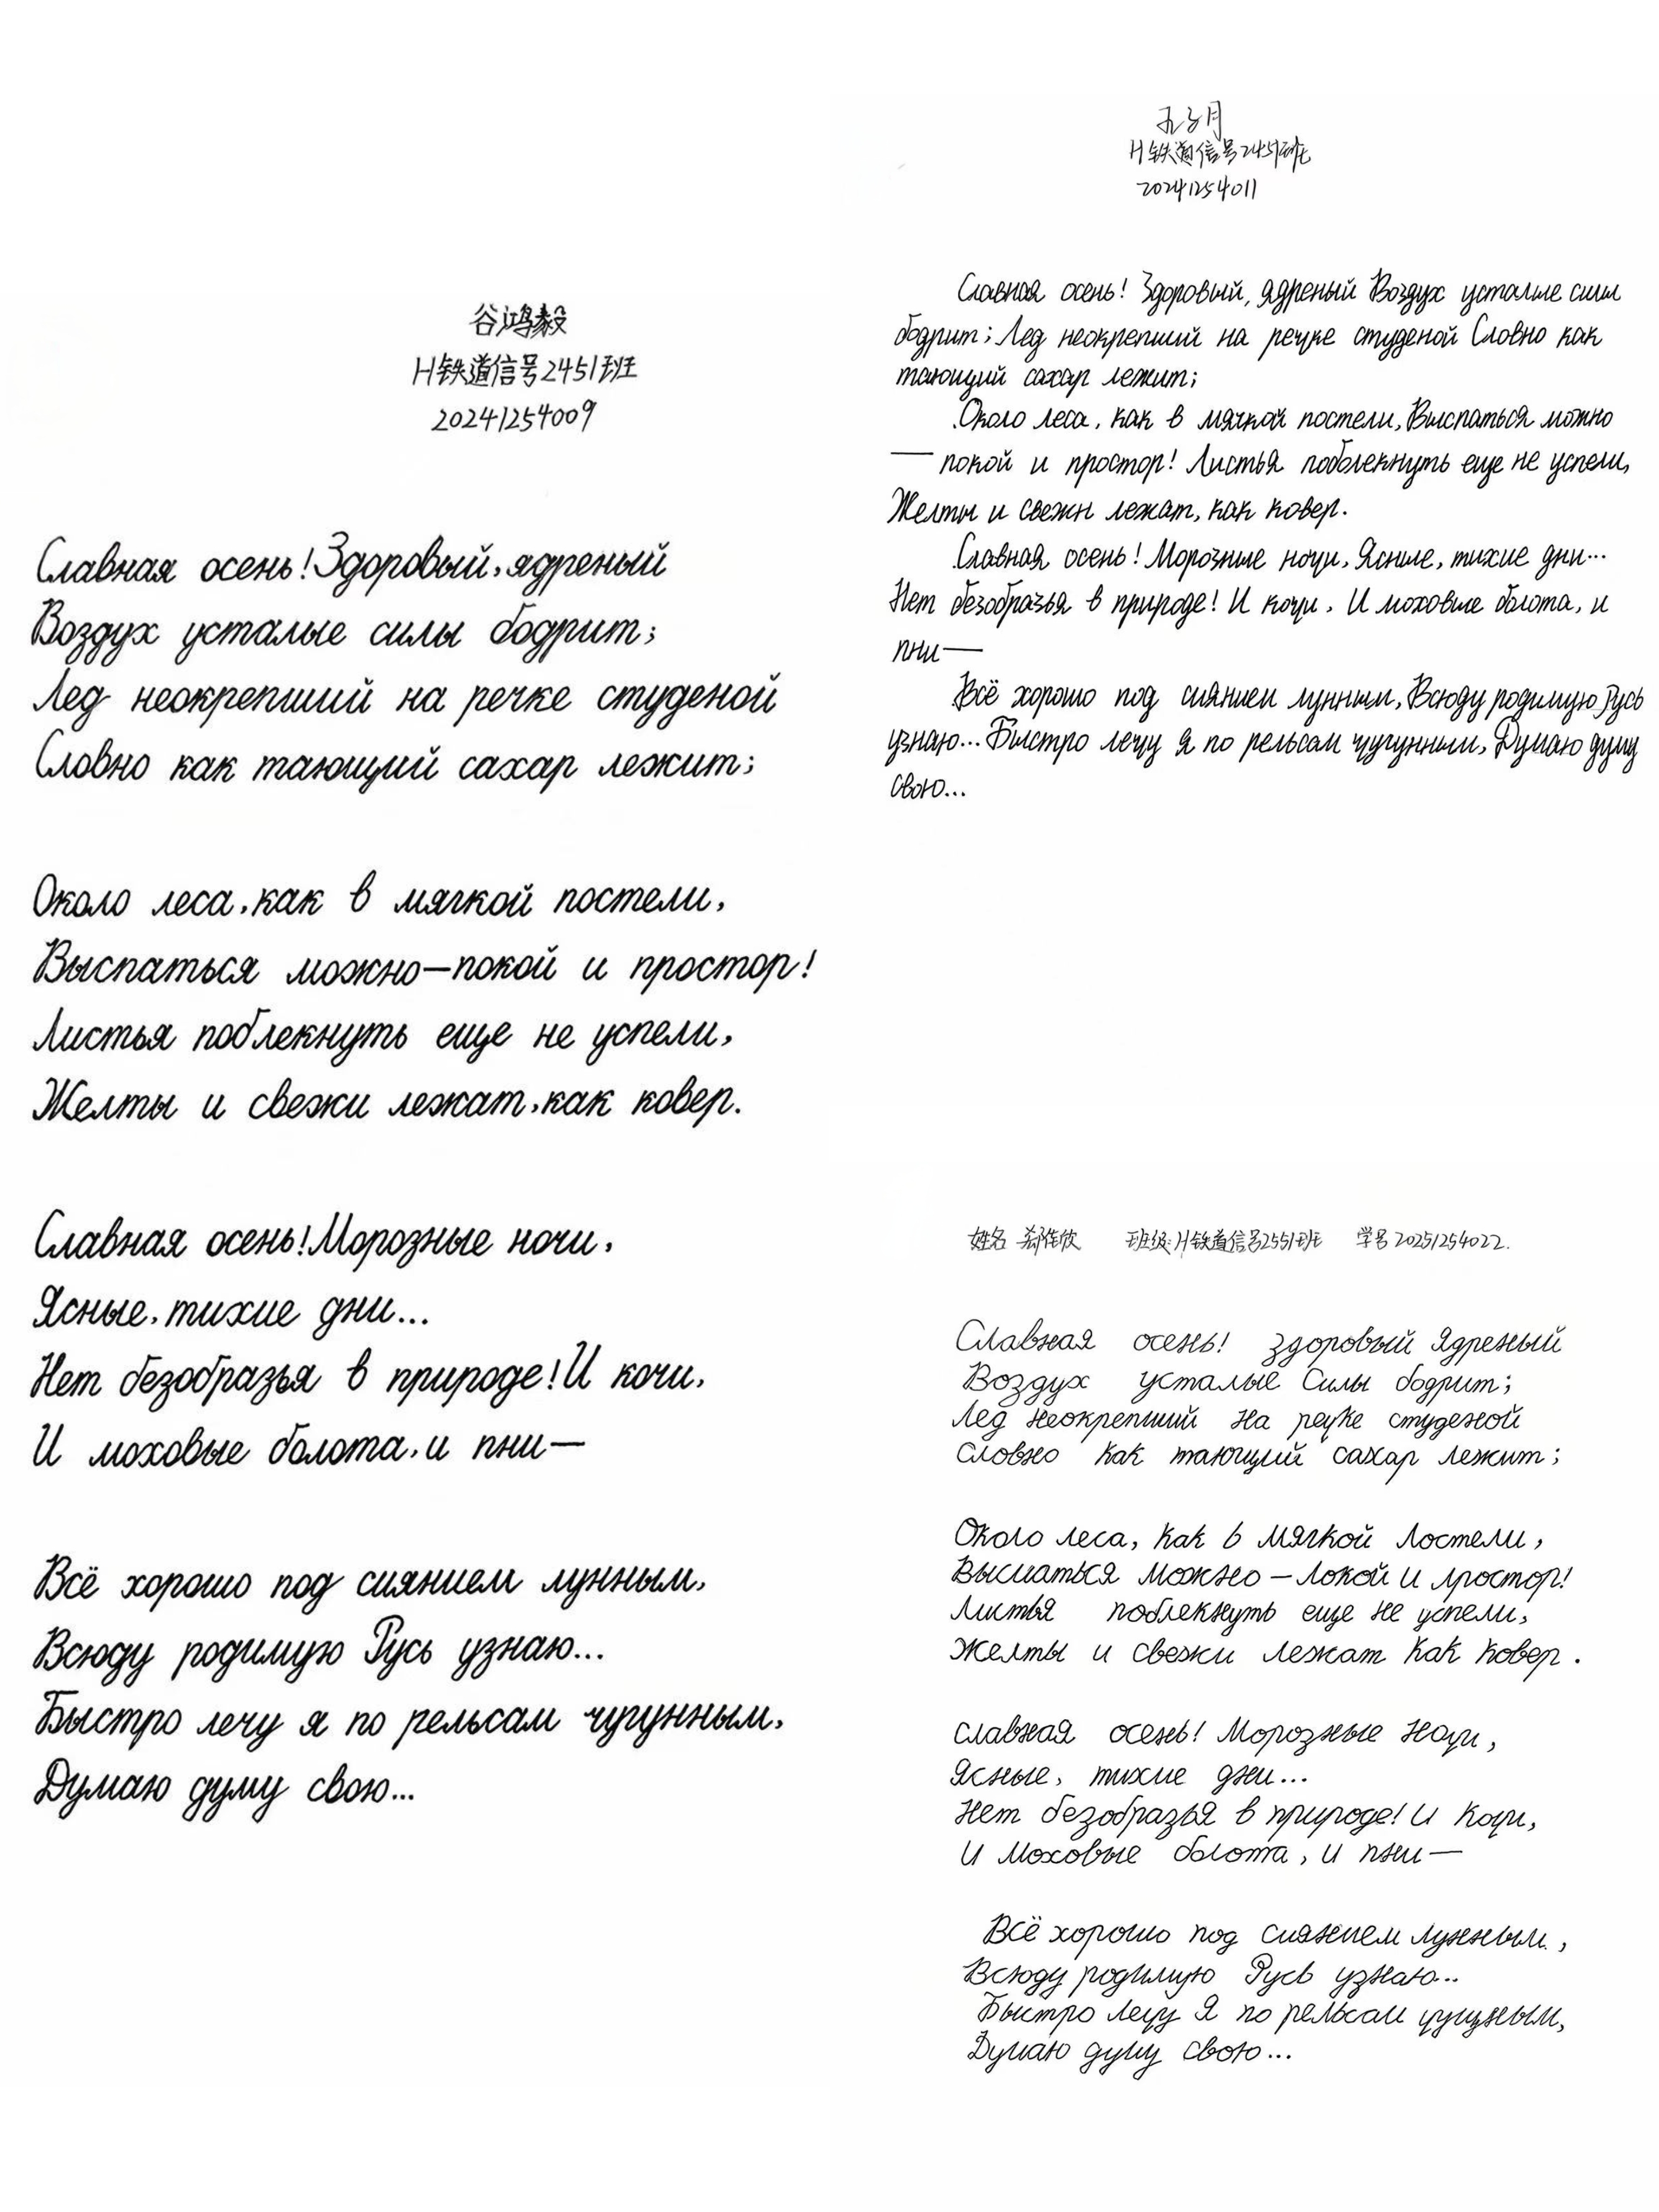 谷鸿毅
H铁道信号2451班
20241254009
Славная осень! Здоровый, ядреный
Воздух усталые силы бодрит;
Лед неокрепший на речке студеной
Словно как тающий сахар лежит;
Около леса, как в мягкой постели,
Выспаться можно—покой и простор!
Листья поблекнуть еще не успели,
Желты и свежи лежат, как ковер.
Славная осень! Морозные ночи,
Ясные, тихие дни...
Нет безобразья в природе! И кочи,
И моховые болота, и пни—
Всё хорошо под сиянием лунным,
Всюду родимую Русь узнаю...
Быстро лечу я по рельсам чугунным,
Думаю думу свою...
孔子月
H铁道信号2451班
20241254011
Славная осень! Здоровый, ядреный Воздух усталые силы
бодрит; Лед неокрепший на речке студеной Словно как
тающий сахар лежит;
Около леса, как в мягкой постели, Выспаться можно
— покой и простор! Листья поблекнуть еще не успели,
Желты и свежи лежат, как ковер.
Славная осень! Морозные ночи, Ясные, тихие дни...
Нет безобразья в природе! И кочи, И моховые болота, и
пни—
Всё хорошо под сиянием лунным, Всюду родимую Русь
узнаю... Быстро лечу я по рельсам чугунным, Думаю думу
свою...
姓名 班级:H铁道信号2551班 学号 20251254022.
Славная осень! здоровый ядреный
Воздух усталые Силы бодрит;
Лед неокрепший на речке студеной
Словно как тающий сахар лежит;
Около леса, как в мягкой лостели,
Высиаться можно — локой и лростор!
Листья поблекнуть еще не успели,
Желты и свежи лежат как ковер.
славная осень! Морозные ночи,
Ясные, тихие дни...
Нет безобразья в природе! И кочи,
И моховые болота, и пни—
Всё хорошо под сиянием лунным,
Всюду родимую Русь узнаю...
Быстро лечу я по рельсам чугунным,
Думаю думу свою...